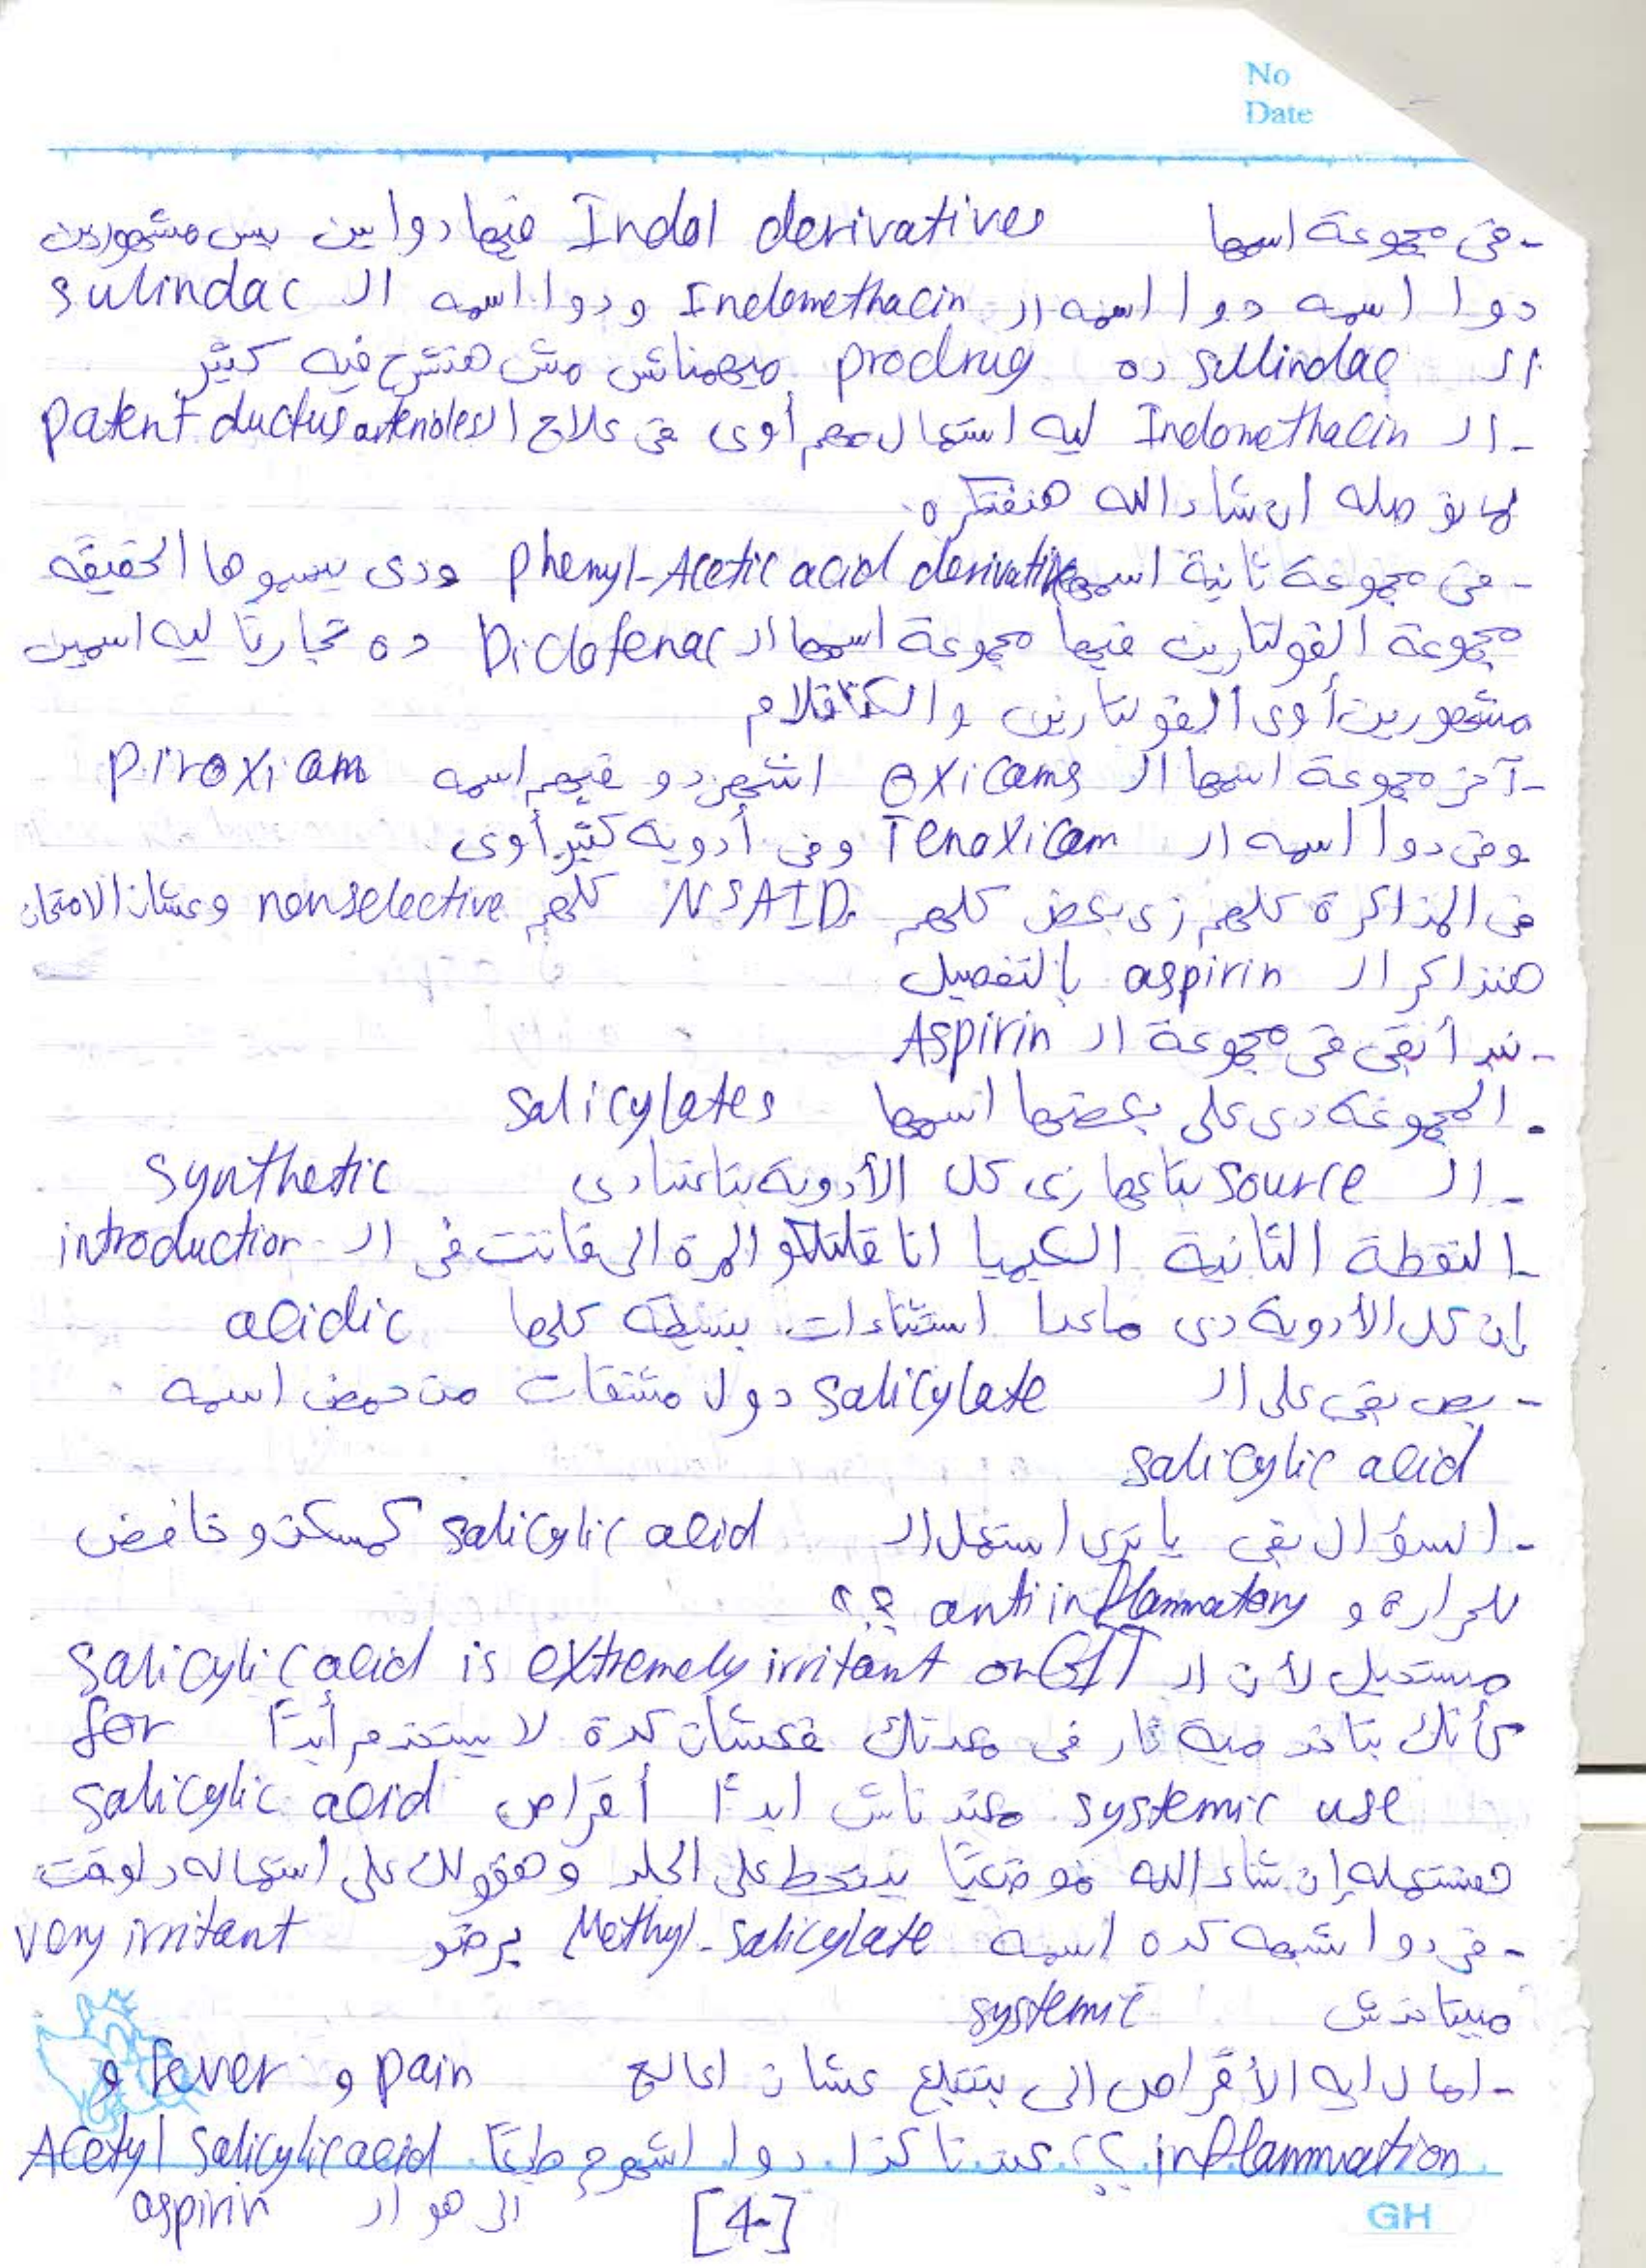 No
Date
- في مجموعة اسمها Indol derivatives فيها دوايين بس مشهورين
دوا اسمه دوا اسمه ال Indomethacin ودوا اسمه ال sulindac
ال sulindac ده prodrug ميهمناش مش هنشرح فيه كثير
- ال Indomethacin ليه استعمال مهم أوى في علاج ال patent ductus arterioles
لما نوصله ان شاء الله هنفتكره.
- في مجموعة ثانية اسمها phenyl-Acetic acid derivative ودى بيسموها الحقيقه
مجموعة الفولتارين فيها مجموعة اسمها ال Diclofenac ده تجاريًا ليه اسمين
مشهورين أوى الفولتارين والكتافلام
- آخر مجموعة اسمها ال oxicams اشهر دو فيهم اسمه piroxiam
وفي دوا اسمه ال Tenoxicam وفى أدوية كثير أوى
فى المذاكرة كلهم زى بعض كلهم NSAID. كلهم nonselective وعشان الامتحان
هنذاكر ال aspirin بالتفصيل
- نبدأ بقى في مجموعة ال Aspirin
. المجموعة دى على بعضها اسمها salicylates
- ال source بتاعها زى كل الأدوية بتاعتنا دى synthetic
- النقطة الثانية الكيميا انا قلتلكو المرة الى فاتت فى ال introduction
إن كل الأدوية دى ماعدا استثناءات بسيطة كلها acidic
- بص بقى على ال salicylate دول مشتقات من حمض اسمه
salicylic acid
- السؤال بقى يا ترى استعمل ال salicylic acid كمسكن و خافض
للحرارة و anti inflammatory ؟؟
مستحيل لأن ال salicylic acid is extremely irritant on GIT
كأنك بتاخد مية نار فى معدتك فعشان كدة لا يستخدم أبدًا for
systemic use معندناش ابدًا أقراص salicylic acid
هنستعمله إن شاء الله موضعيًا يتحط على الجلد وهقولك على استعماله دلوقت
- فى دوا شبهه كده اسمه Methyl-salicylate برضو very irritant
مبيتاخدش systemic
- امال ايه الأقراص الى بتتبلع عشان اعالج pain و fever و
inflammation ؟؟ عندنا كذا دوا اشهرهم طبعًا Acetyl salicylic acid
الى هو ال aspirin
[4-]
GH